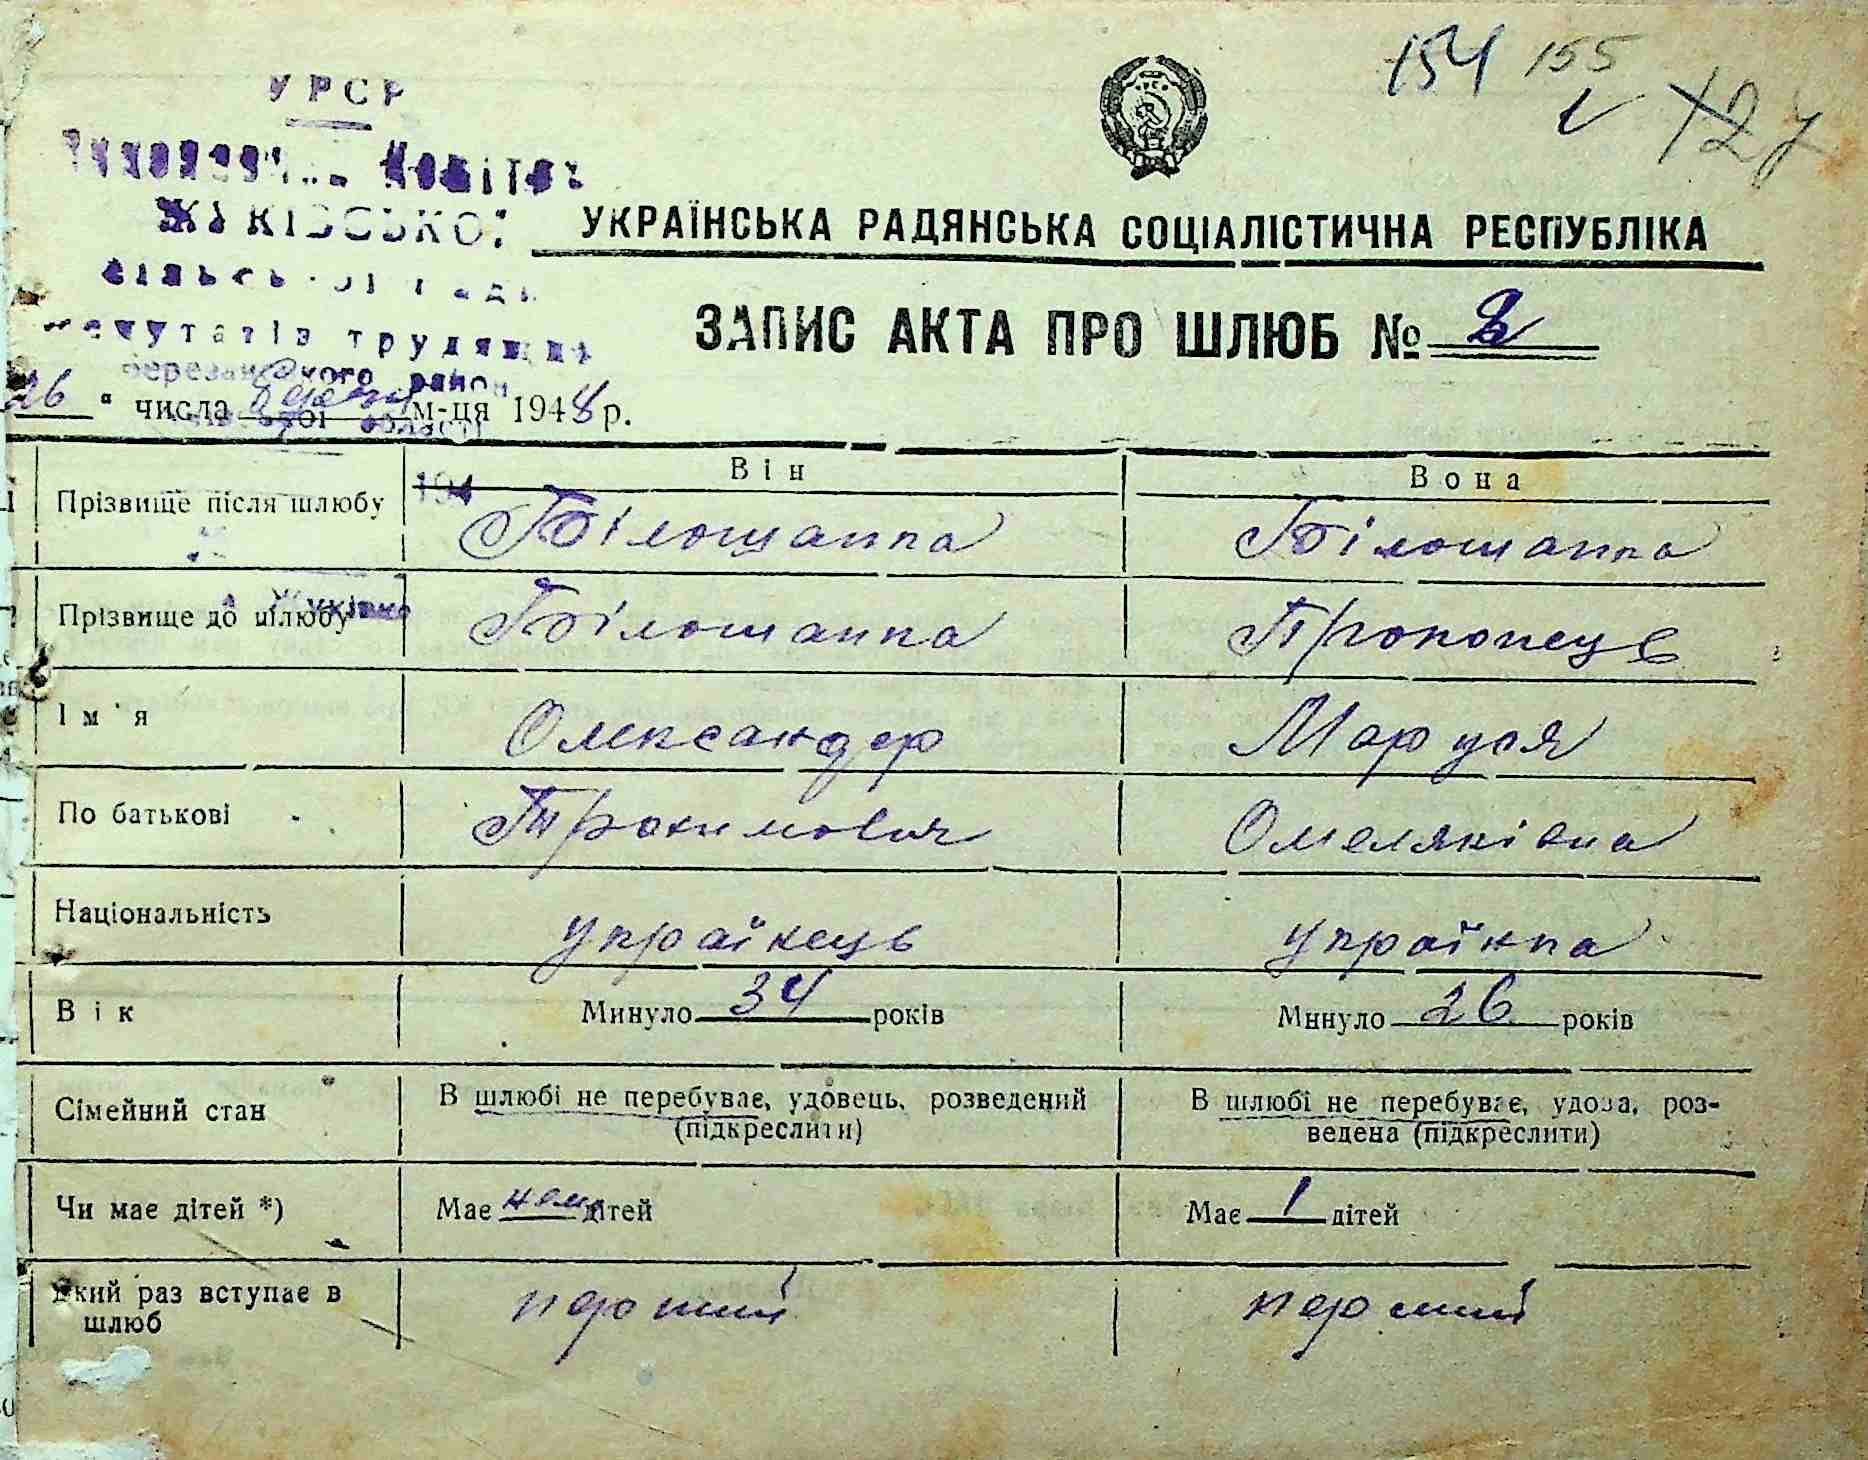 154 155
127
УРСР
Виконавчий Комітет
ЖУКІВСЬКОЇ
сільської Ради
депутатів трудящих
Березанського району
області
194
УКРАЇНСЬКА РАДЯНСЬКА СОЦІАЛІСТИЧНА РЕСПУБЛІКА
ЗАПИС АКТА ПРО ШЛЮБ № 2
26 " числа м-ця 1948 р.
Він Вона
Прізвище після шлюбу Білошапка Білошапка
Прізвище до шлюбу Білошапка Прокопець
Ім'я Олександр Маруся
По батькові Трохимович Омелянівна
Національність українець українка
Вік Минуло 34 років Минуло 26 років
Сімейний стан В шлюбі не перебуває, удовець, розведений (підкреслити) В шлюбі не перебуває, удова, роз-
ведена (підкреслити)
Чи має дітей *) Має нема дітей Має 1 дітей
Який раз вступає в перший перший
шлюб